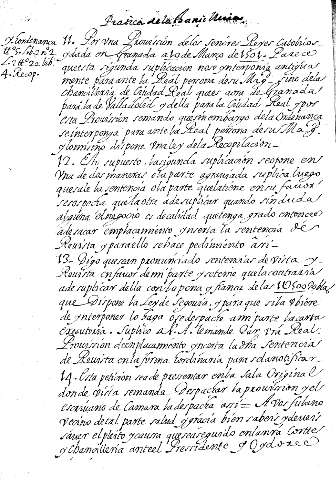 Pratica de la Chanzilleria
Hordenanza
4. Recop.
11. Por una Provision de los Señores Reyes Catolicos
dada en Granada a 10 de Marzo de 1501. Parece
que esta segunda suplicacion no se interponia antigua
mente para ante la Real persona de su Mag. sino de la
chanzilleria de Ciudad Real que es aora de Granada
para la de Valladolid y de lla para la Ciudad Real y por
esta Provision se manda que sin embargo de la Ordenanza
se interponga para ante la Real persona de su Mag.
y lo mismo dispone una ley de la Recopilacion
12. Esto supuesto la segunda suplicacion se opone en
Una de dos maneras o la parte agraviada suplica luego
que sale la sentencia o la parte que la tiene en su favor
se sospecha que la otra a de suplicar quando sin duda
alguna el negocio es de calidad que tenga grado entonces
a de sacar emplazamiento y inserta la sentencia de
Revista y para ello se hace pedimiento asi
13. Digo que se an pronunciado sentencias de vista y
Revista en favor de mi parte y se teme que la contraria
a de suplicar de ella con la pena y fianza de las 1500 doblas
que dispone la Ley de Segovia, y para que si la ubiere
de interponer lo haga o se despache a mi parte la carta
executoria. Suplico a V. A. le mande dar su Real
Provision de emplazamiento y inserta la dha Sentencia
de Revista en la forma hordinaria para se la notificar
14. Esta peticion se a de presentar en la Sala Original
donde vista se manda Despachar la provission y el
escrivano de Camara la despacha asi = A vos fulano
vezino de tal parte salud y gracia bien sabeis y deveis
saver el pleito y causa que se a seguido en la nra Corte
y Chanzilleria ante el Presidente y Oydores